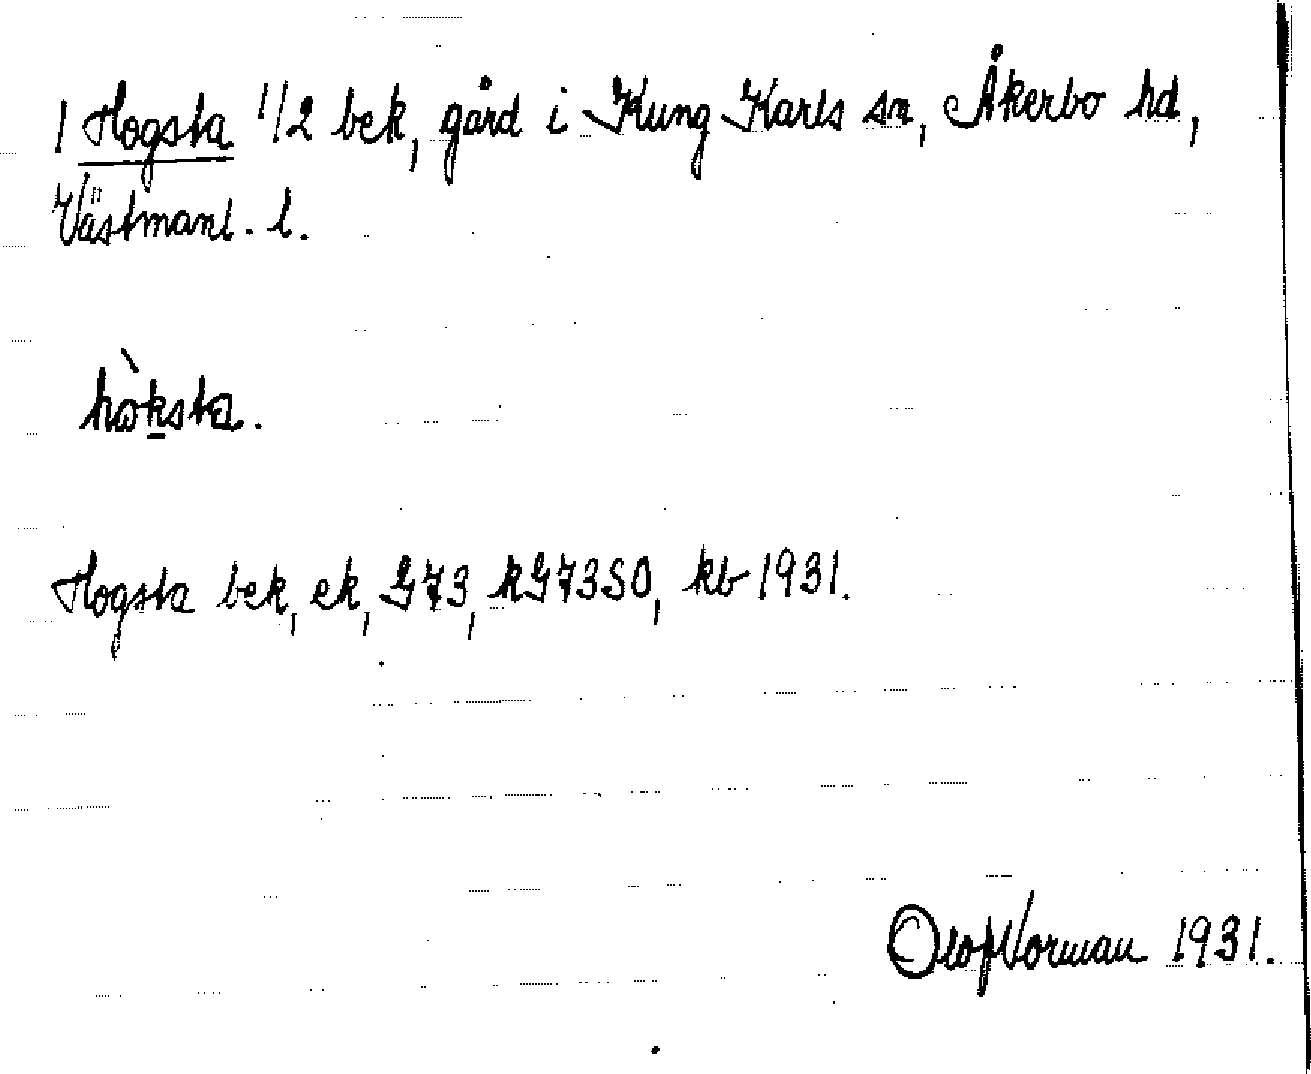 1 Hogsta 1/2 bek, gård i Kung Karls sn, Åkerbo hd,
Västmanl. l.
hòksta.
Hogsta bek, ek, G73, kG73SO, kb 1931.
Olof Norman 1931.